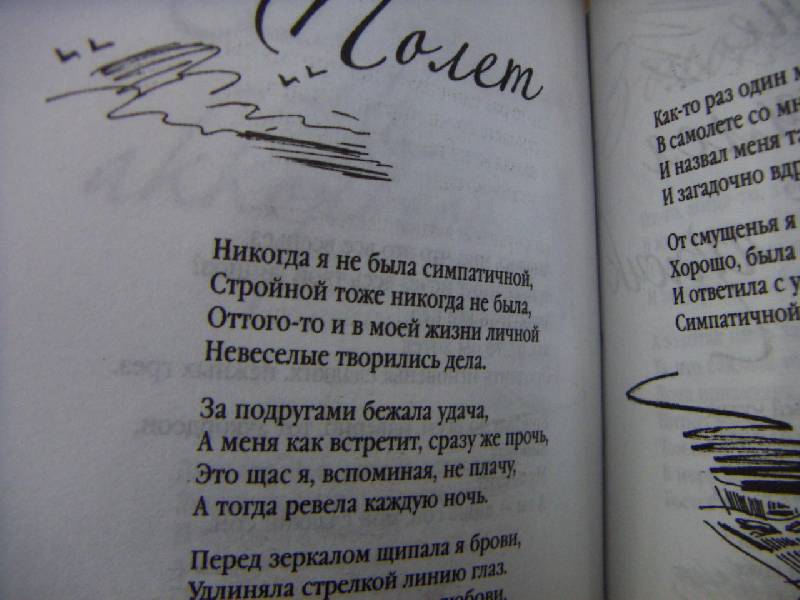 Полет
Никогда я не была симпатичной,
Стройной тоже никогда не была,
Оттого-то и в моей жизни личной
Невеселые творились дела.
За подругами бежала удача,
А меня как встретит, сразу же прочь,
Это щас я, вспоминая, не плачу,
А тогда ревела каждую ночь.
Перед зеркалом щипала я брови,
Удлиняла стрелкой линию глаз.
Как-то раз один
В самолете со
И назвал меня
И загадочно
От смущенья я
Хорошо, была
И ответила с
Симпатичной